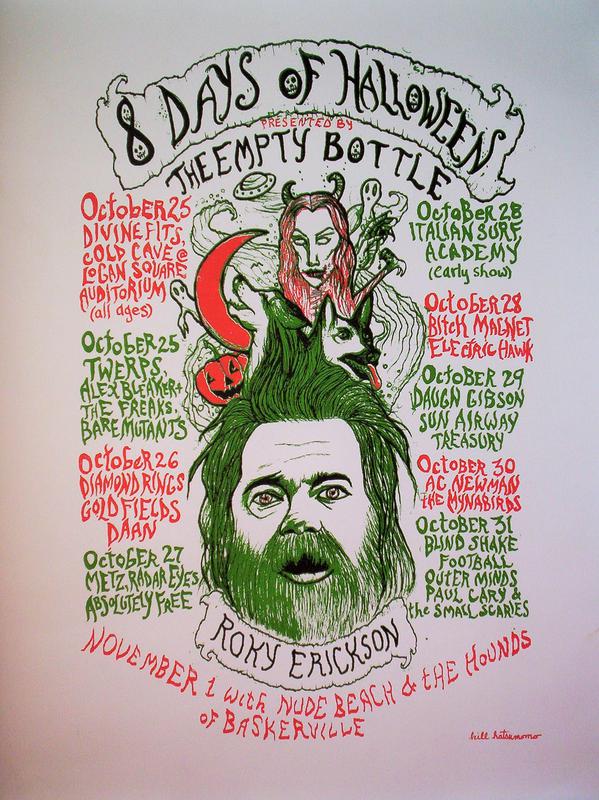 8 DAYS OF HALLOWEEN
PRESENTED BY
THE EMPTY BOTTLE
OctobER 25
DIVINE FITS,
COLD CAVE @
LOGAN SQUARE
AUDITORIUM
(all ages)
OctobER 25
TWERPS,
ALEX BLEAKER +
THE FREAKS,
BARE MUTANTS
OctobER 26
DIAMOND RINGS
GOLD FIELDS
DAAN
OctobER 27
METZ, RADAR EYES,
ABSOLUTELY FREE
OctoBER 28
ITALIAN SURF
ACADEMY
(early show)
OctobER 28
Bitch MAGNET
ELEctRIC HAWK
OctobER 29
DAUGN GIBSON
SUN AIRWAY
TREASURY
OctobER 30
AC NEWMAN
tHE MYNABIRDS
OctobER 31
BLIND SHAKE
FOOTBALL
OUTER MINDS
PAUL CARY &
the SMALL SCARIES
ROKY ERICKSON
NOVEMBER 1 with NUDE BEACH & tHE HOUNDS
OF BASKERVILLE
kill hatsumomo